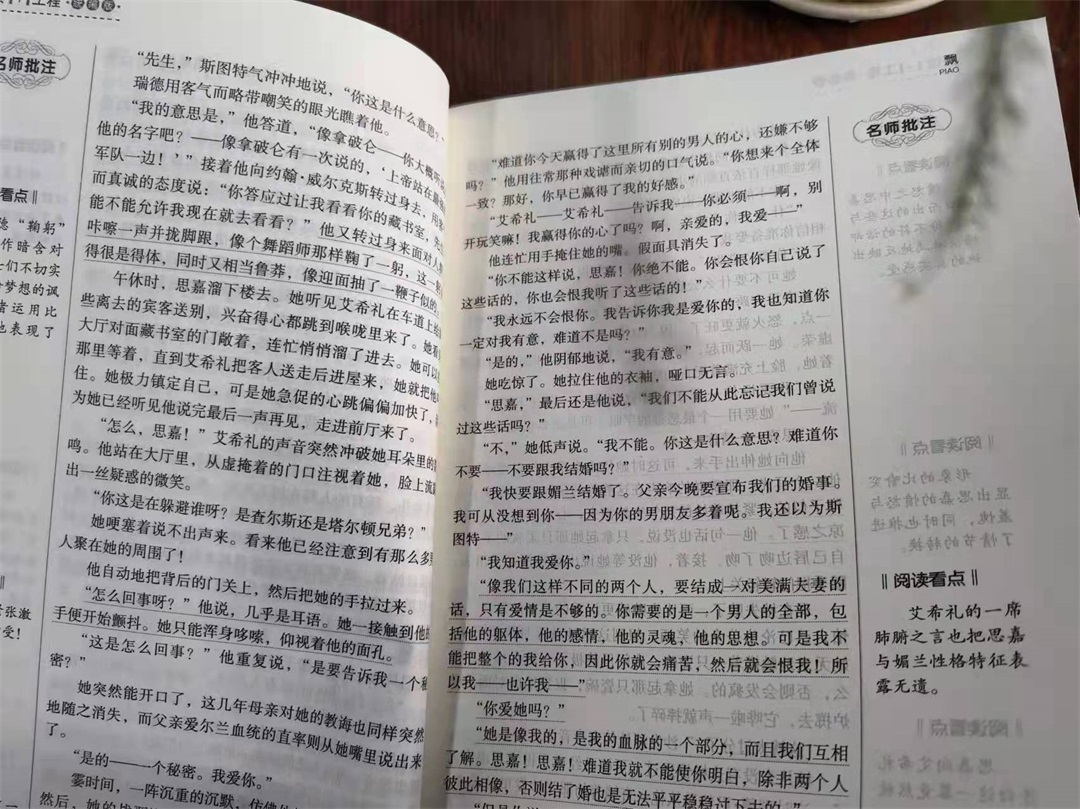 工程
名师批注
“先生，”斯图特气冲冲地说，“你这是什么意思？”
瑞德用客气而略带嘲笑的眼光瞧着他。
“我的意思是，”他答道，“像拿破仑——你大概听
他的名字吧？——像拿破仑有一次说的，‘上帝站在最
军队一边！’”接着他向约翰·威尔克斯转过身去，用
而真诚的态度说：“你答应过让我看看你的藏书室，先
能不能允许我现在就去看看？” 他又转过身来面对人
咔嚓一声并拢脚跟，像个舞蹈师那样鞠了一躬，这一
得很是得体，同时又相当鲁莽，像迎面抽了一鞭子似的
午休时，思嘉溜下楼去。她听见艾希礼在车道上
些离去的宾客送别，兴奋得心都跳到喉咙里来了。她看
大厅对面藏书室的门敞着，连忙悄悄溜了进去。她可以
那里等着，直到艾希礼把客人送走后进屋来，她就把他
住。她极力镇定自己，可是她急促的心跳偏偏加快了，
为她已经听见他说完最后一声再见，走进前厅来了。
“怎么，思嘉！”艾希礼的声音突然冲破她耳朵里的
鸣。他站在大厅里，从虚掩着的门口注视着她，脸上流
出一丝疑惑的微笑。
“你这是在躲避谁呀？是查尔斯还是塔尔顿兄弟？”
她哽塞着说不出声来。看来他已经注意到有那么多
人聚在她的周围了！
他自动地把背后的门关上，然后把她的手拉过来。
“怎么回事呀？”他说，几乎是耳语。她一接触到他
手便开始颤抖。她只能浑身哆嗦，仰视着他的面孔。
“这是怎么回事？”他重复说，“是要告诉我一个秘
密？”
她突然能开口了，这几年母亲对她的教诲也同样突然
地随之消失，而父亲爱尔兰血统的直率则从她嘴里说出来
了。
“是的——一个秘密。我爱你。”
霎时间，一阵沉重的沉默，仿佛他
看点
“鞠躬”
作暗含对
士们不切实
梦想的讽
者运用比
地表现了
张激
受！
飘
PIAO
“难道你今天赢得了这里所有别的男人的心，还嫌不够
吗？”他用往常那种戏谑而亲切的口气说。“你想来个全体
一致？那好，你早已赢得了我的好感。”
“艾希礼——艾希礼——告诉我——你必须——啊，别
开玩笑嘛！我赢得你的心了吗？啊，亲爱的，我爱——”
他连忙用手掩住她的嘴。假面具消失了。
“你不能这样说，思嘉！你绝不能。你会恨你自己说了
这些话的，你也会恨我听了这些话的！”
“我永远不会恨你。我告诉你我是爱你的，我也知道你
一定对我有意，难道不是吗？”
“是的，”他阴郁地说，“我有意。”
她吃惊了。她拉住他的衣袖，哑口无言。
“思嘉，”最后还是他说，“我们不能从此忘记我们曾说
过这些话吗？”
“不，”她低声说。“我不能。你这是什么意思？难道你
不要——不要跟我结婚吗？”
“我快要跟媚兰结婚了。父亲今晚要宣布我们的婚事。
我可从没想到你——因为你的男朋友多着呢。我还以为斯
图特——”
“我知道我爱你。”
“像我们这样不同的两个人，要结成一对美满夫妻的
话，只有爱情是不够的。你需要的是一个男人的全部，包
括他的躯体，他的感情，他的灵魂，他的思想。可是我不
能把整个的我给你，因此你就会痛苦，然后就会恨我！所
以我——也许我——”
“你爱她吗？”
“她是像我的，是我的血脉的一个部分，而且我们互相
了解。思嘉！思嘉！难道我就不能使你明白，除非两个人
彼此相像，否则结了婚也是无法平平稳稳过下去的。”
名师批注
阅读看点
艾希礼的一席
肺腑之言也把思嘉
与媚兰性格特征表
露无遗。